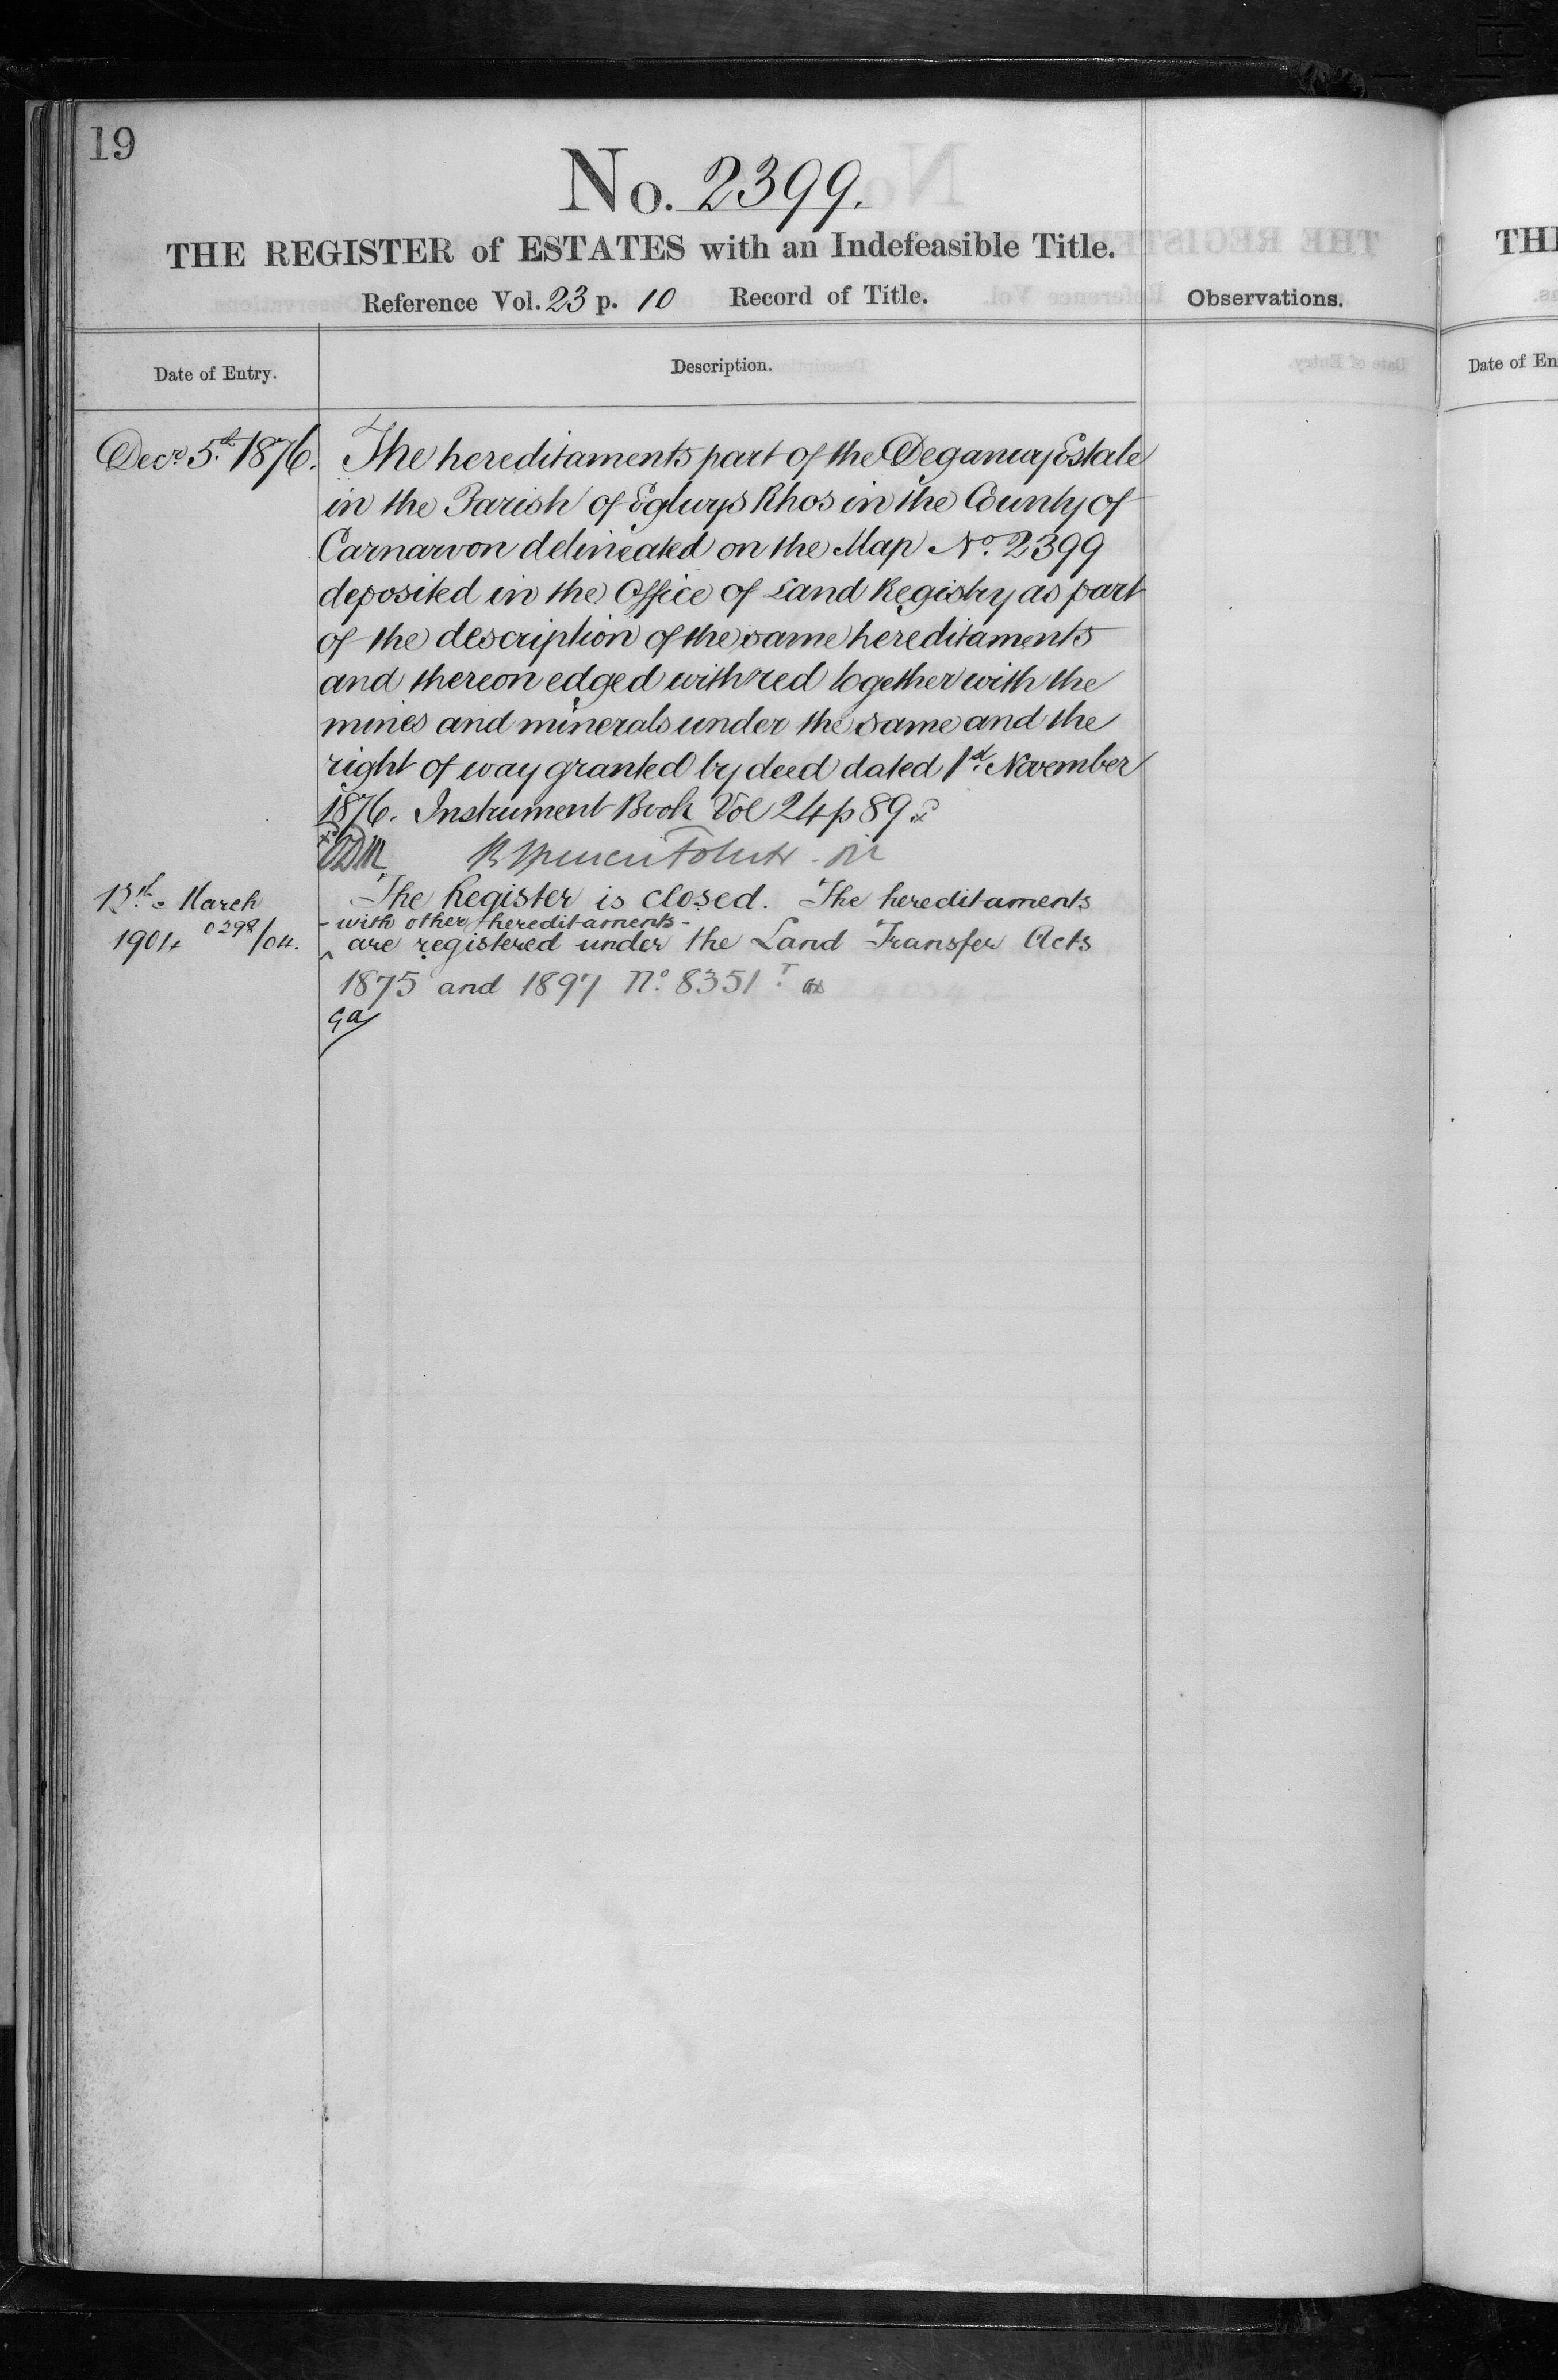 19
No. 2399.
THE REGISTER of ESTATES with an Indefeasible Title.
Reference Vol. 23 p. 10 Record of Title.
Observations.
Date of Entry.
Description.
Decr. 5th 1876.
The hereditaments part of the Deganwy Estate
in the Parish of Eglwys Rhos in the County of
Carnarvon delineated on the Map No. 2399
deposited in the Office of Land Registry as part
of the description of the same hereditaments
and thereon edged with red together with the
mines and minerals under the same and the
right of way granted by deed dated 1st November
1876. Instrument Book Vol 24 p 89
13th March
1904 0298/04.
The Register is closed. The hereditaments
- with other hereditaments -
^ are registered under the Land Transfer Acts
1875 and 1897 No. 8351
TH
Date of En